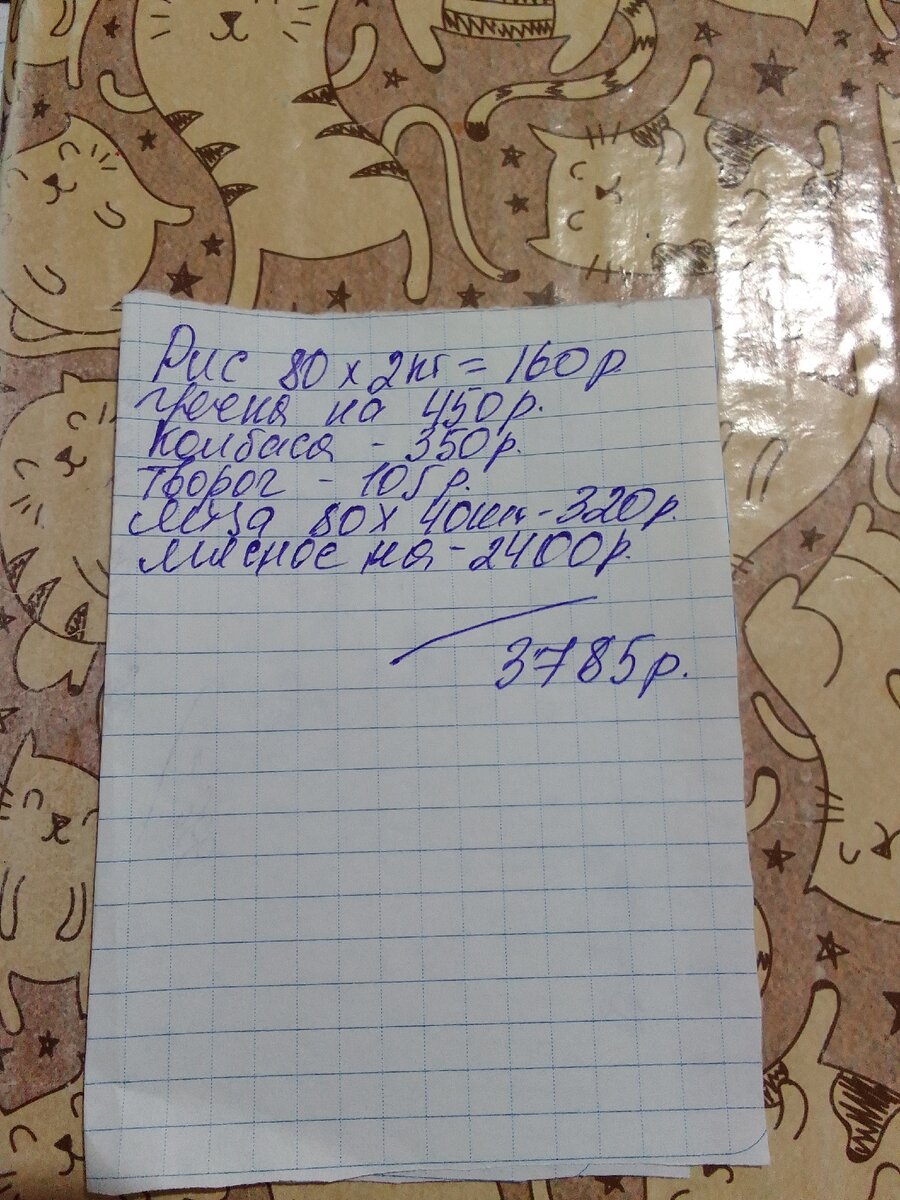 Рис 80 х 2кг = 160р.
гречка на 450р.
Колбаса - 350р.
творог - 105р.
Яйца 80 х 40шт - 320р.
мясное на - 2400р.
3785р.